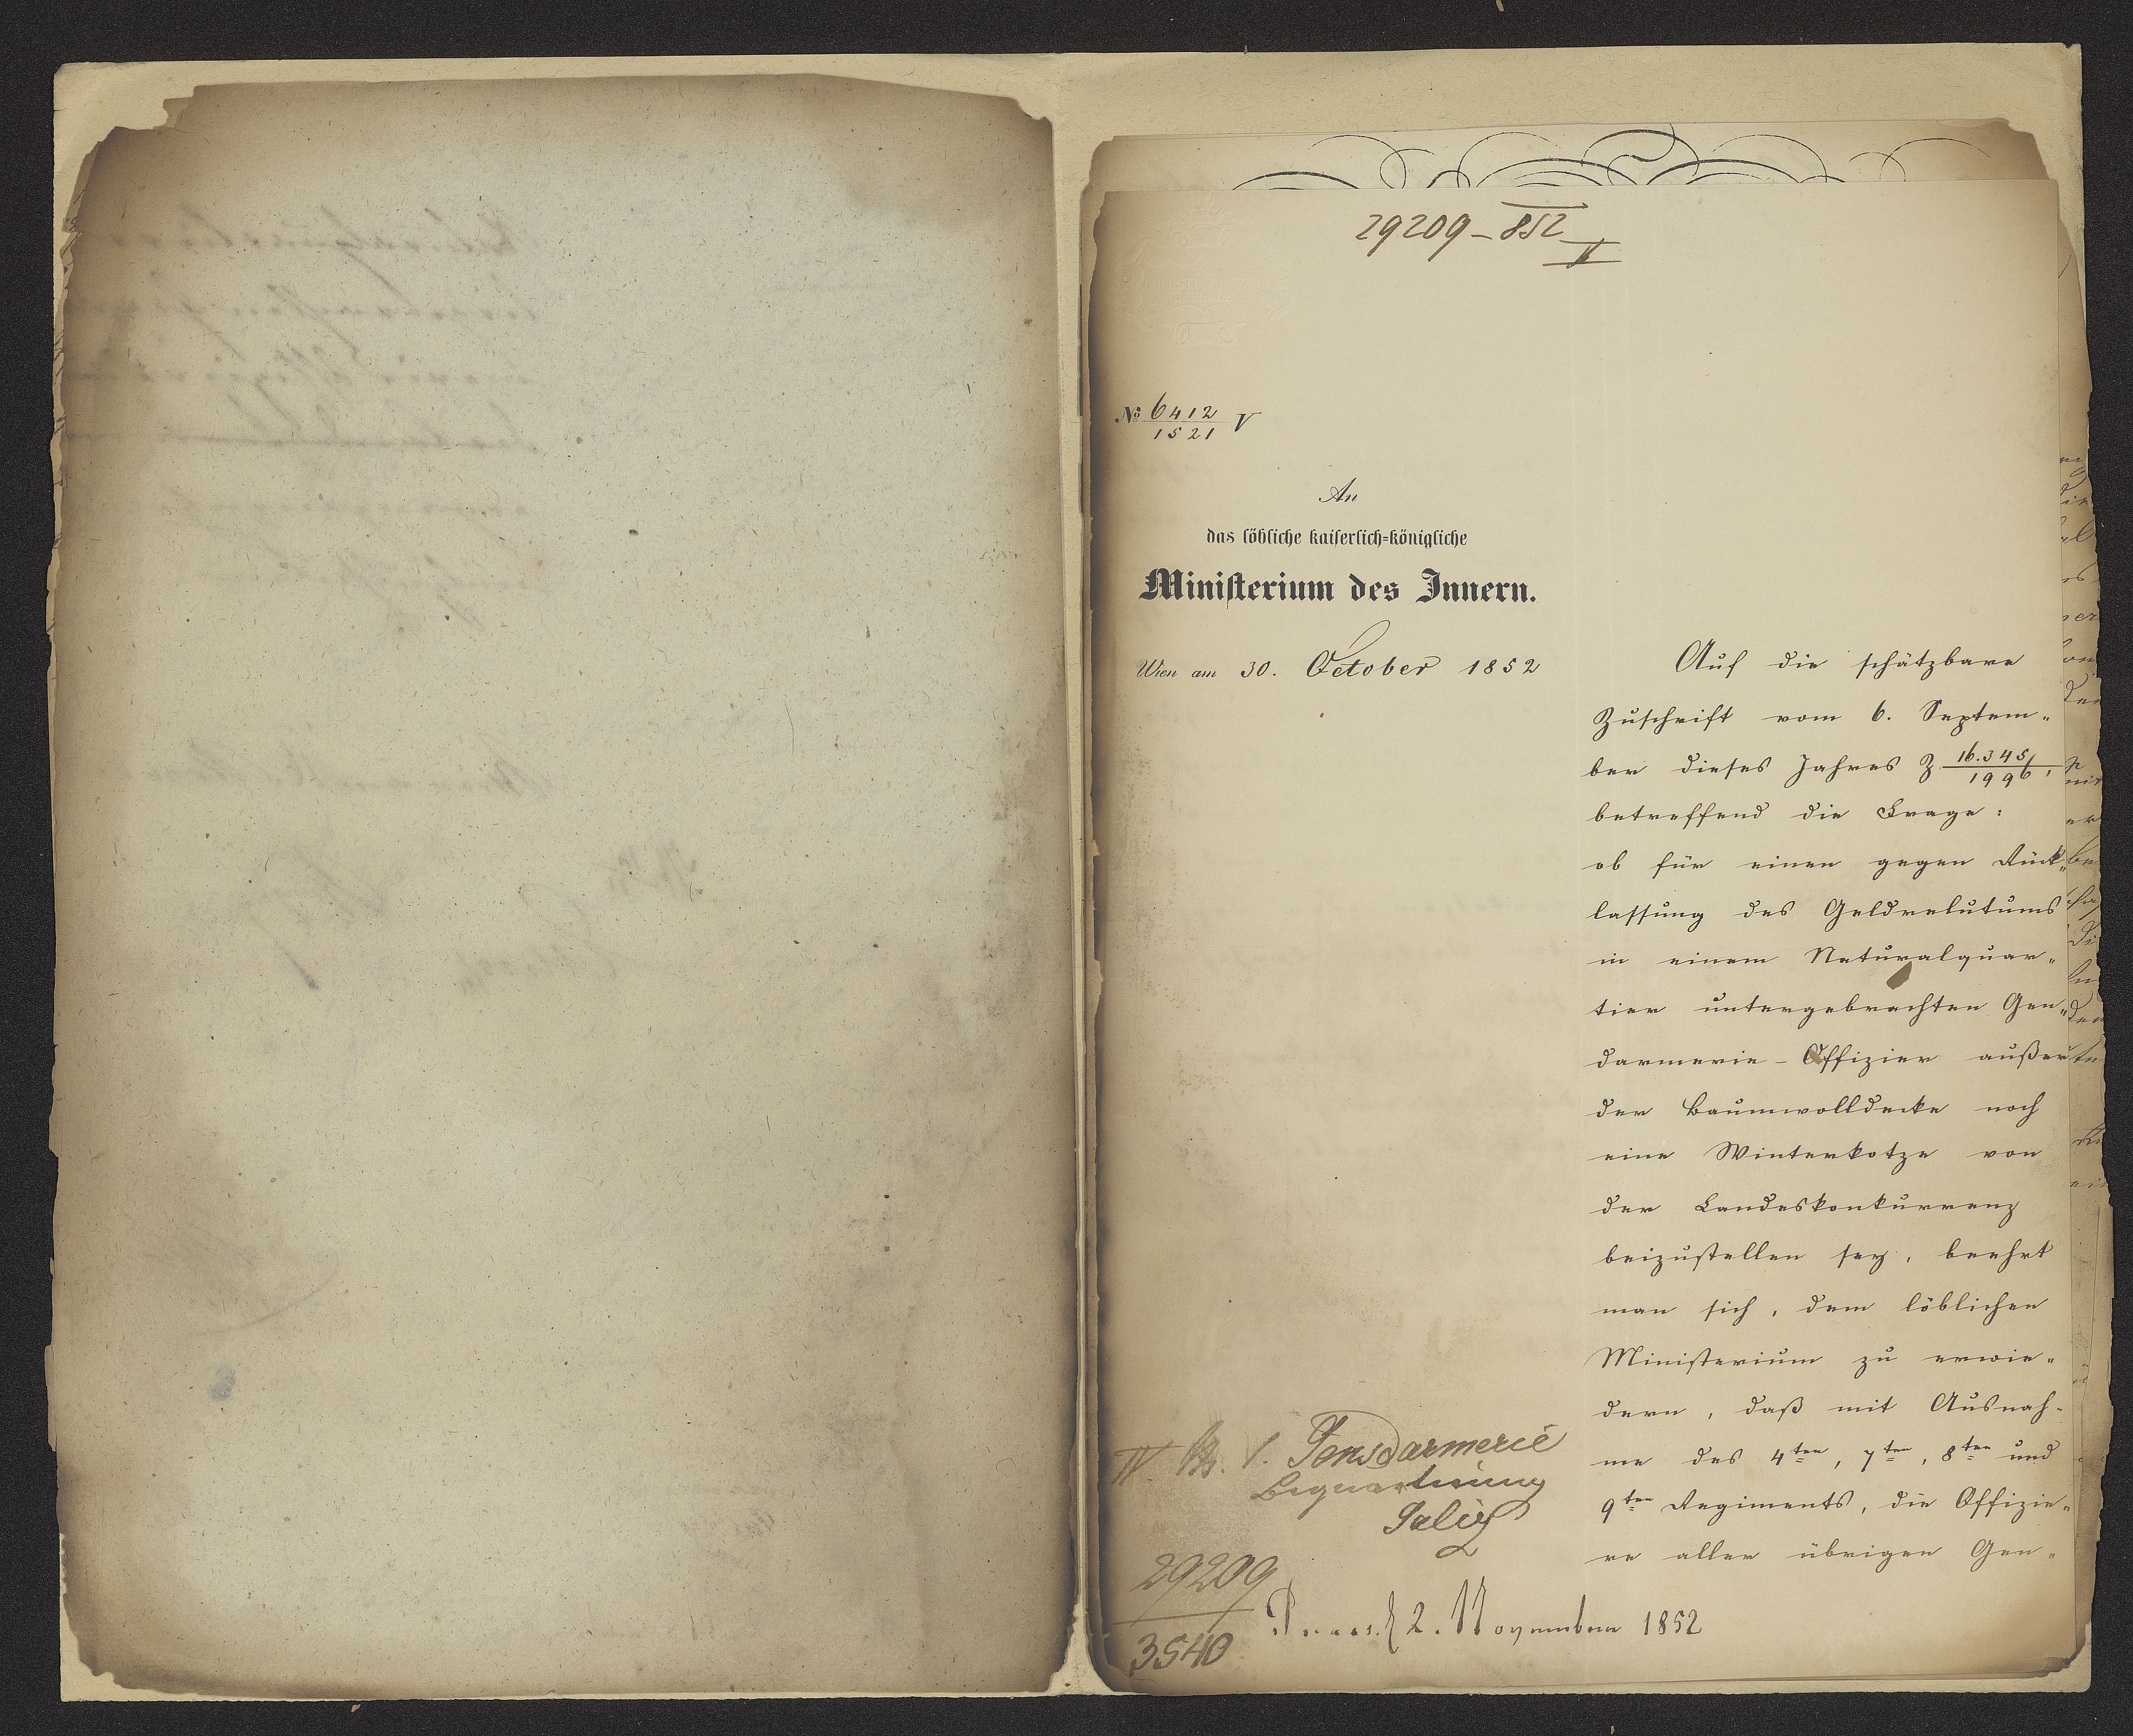 29209-852
II
No 6412 V
1521
An
das löbliche kaiserlich-königliche
Ministerium des Innern.
Wien am 30. October 1852
Auf die schätzbare
Zuschrift vom 6. Septem„
ber dieses Jahres Z 16.345/1996,
betreffend die Frage:
ob für einen gegen Rück„
lassung des Geldrelutums
in einem Naturalquar„
tier untergebrachten Gen„
darmerie-Offizier außer
der Baumwolldecke noch
eine Winterkotze von
der Landeskonkurrenz
beizustellen sey, beehrt
man sich, dem löblichen
Ministerium zu erwie„
dern, daß mit Ausnah„
me des 4ten, 7ten, 8ten und
9ten Regiments, die Offizie„
re aller übrigen Gen„
IV. Gensdarmerie
Bequartirung
29209
3540
2. November 1852